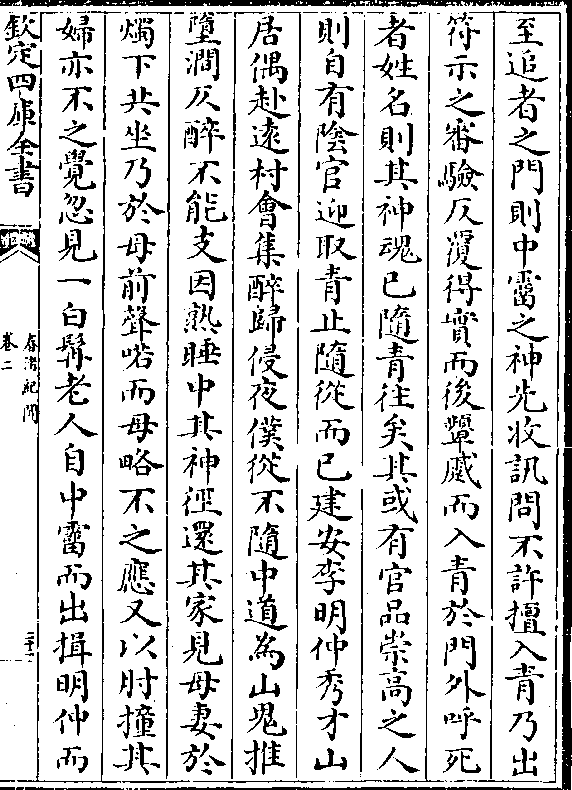 至追者之門則中霤之神先收訊問不許擅入青乃出
符示之審驗反覆得實而後顰戚而入青於門外呼死
者姓名則其神魂已隨青往矣其或有官品崇高之人
則自有陰官迎取青止隨從而已建安李明仲秀才山
居偶赴逺村會集醉歸侵夜僕從不隨中道為山鬼推
墮澗仄醉不能支因熟睡中其神徑還其家見母妻於
燭下共坐乃於母前聲喏而母略不之應又以肘撞其
婦亦不之覺忽見一白髯老人自中霤而出揖明仲而
欽定四庫全書
春渚紀聞
卷二